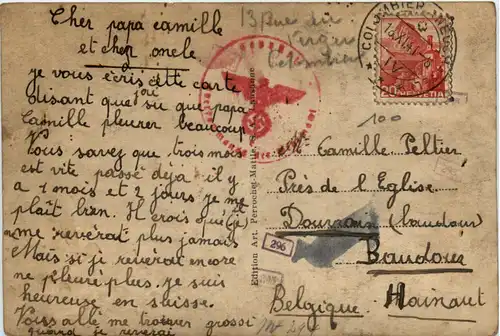 Cher papa camille
et cher oncle
je vous écris cette carte
disant que j'ai su que papa
Camille pleurer beaucoup
Vous savez que trois mois
est vite passé deja il y
a 1 mois et 2 jours je me
plaît bien. Il crois que (je)
me reverai plus jamais
Mais si je reverai encore
ne pleuré plus je suis
heureuse en suisse.
Vous allé me trouver grossi
quand je reverai
13 Rue du
Verger
Colombier
COLOMBIER
HELVETIA
20
100
Camille Peltier
Près de l'Eglise
Baudour
Belgique Hainaut
296
Edition Art. Perrochet-Matile